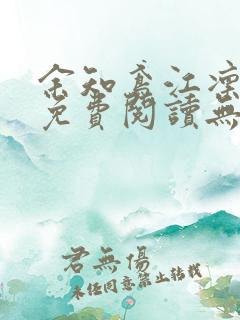 余知鳶江凜
免費閱讀無
君無傷
未經同意禁止轉載